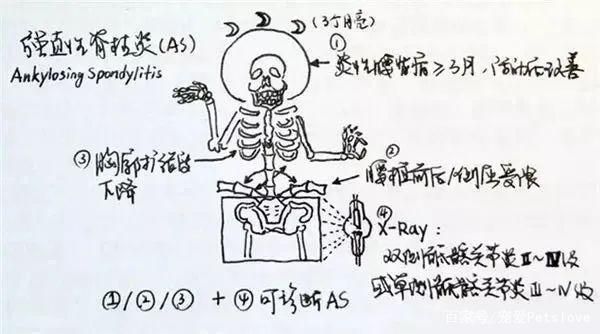 强直性脊柱炎(AS)
Ankylosing Spondylitis
(3个月亮)
① 炎性腰背痛≥3月,活动后改善
② 腰椎前后/侧屈受限
③ 胸廓扩张度
下降
④ X-Ray:
双侧骶髂关节炎Ⅱ~Ⅳ级
或单侧骶髂关节炎Ⅲ~Ⅳ级
①/②/③ + ④ 可诊断AS
百家号/宠爱Petslove